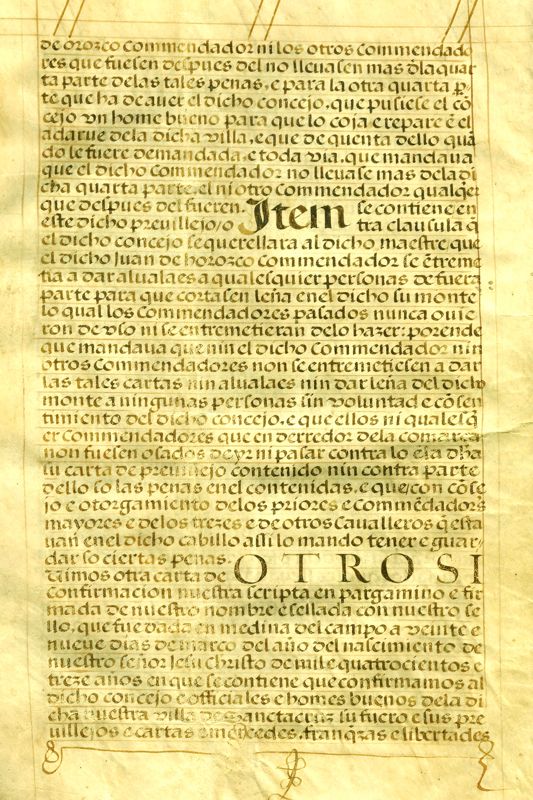 de orozco commendador ni los otros commendado
res que fuesen despues del no lleuasen mas d̃la quar
ta parte delas tales penas, e para la otra quarta p̱
te que ha de auer el dicho concejo, que pusiese el cõ
cejo vn home bueno para que lo coja e repare ẽ el
adarue dela dicha villa, e que de quenta dello quã
do le fuere demandada, e toda vıa, que mandaua
que el dicho commendador no lleuase mas dela di
cha quarta parte, el ni otro commendador qualq̃er
que despues del fueren. Item se contiene en
este dicho preuillejo/o tra clausula q̃
el dicho concejo se querellara al dicho maestre, que
el dicho Juan de horozco commendador se ẽtreme
tia a dar alualaes a qualesquier personas de fuera
parte para que cortasen leña enel dicho su monte
lo qual los commendadores pasados nunca ouie
ron de vso ni se entremetieran delo hazer: porende
que mandaua que nin el dicho commendador nin
otros commendadores non se entremetiesen a dar
las tales cartas nin alualaes nin dar leña del dicho
monte a ningunas personas sin voluntad e cõsen
timiento del dicho concejo, e que ellos ni qualesq̃
er commendadores que en derredor dela comarca
non fuesen osados de yr ni pasar contra lo ẽla dha
su carta de preuillejo contenido nin contra parte
dello so las penas enel contenidas, e que/con cõse
jo e otorgamiento de los priores e commẽdadors
mayores e delos trezes e de otros caualleros q̃ esta
uan enel dicho cabillo assi lo mando tener e guar-
dar so ciertas penas. OTROSI
vimos otra carta de
confirmacion nuestra scripta en pargamino e fir
mada de nuestro nombre e sellada con nuestro se
llo, que fue dada en medina del campo a veinte e
nueue dias de março del año del nascimiento de
nuestro señor Jesu christo de mile quatrocientos e
treze años en que se contiene que confirmamos al
dicho concejo e officiales e homes buenos dela di
cha nuestra villa de sanctacruz su fuero e sus pre
uillejos e cartas e mercedes, franq̃zas e libertades